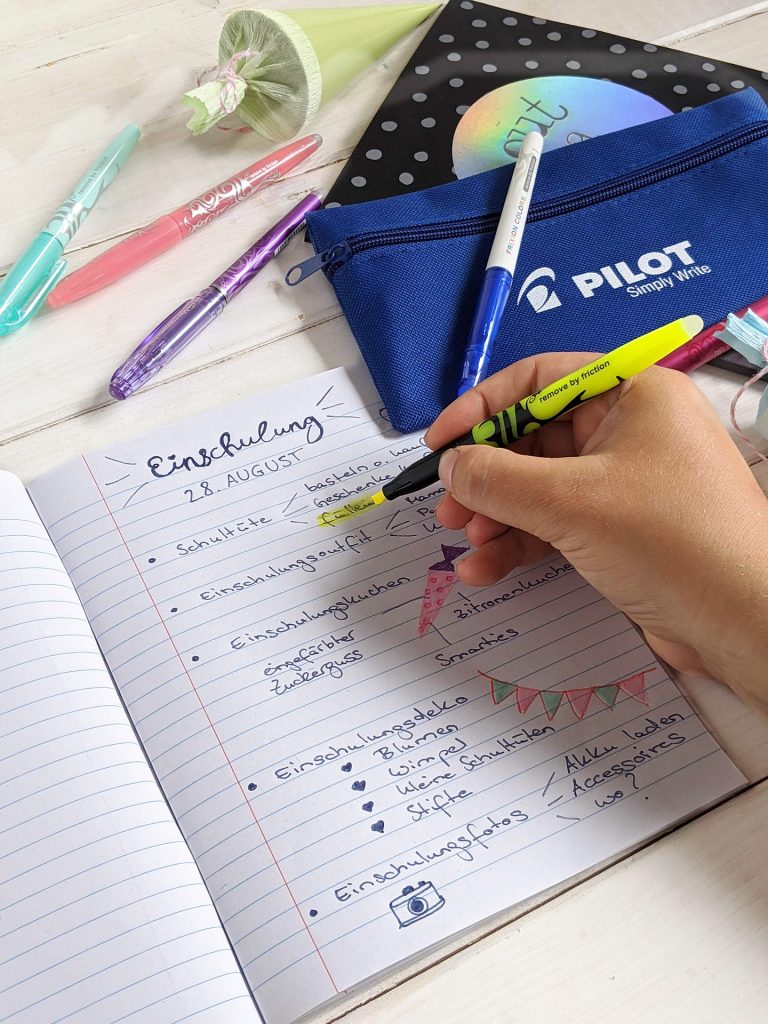 FRIXION COLORS
PILOT
Simply Write
remove by friction
Einschulung
28. AUGUST
Schultüte
basteln o.
Geschenke
füllen
Einschulungsoutfit
Einschulungskuchen
eingefärbter
Zuckerguss
Zitronenkuchen
Smarties
Einschulungsdeko
Blumen
Wimpel
kleine Schultüten
Stifte
Einschulungsfotos
Akku laden
Accessoires
wo?